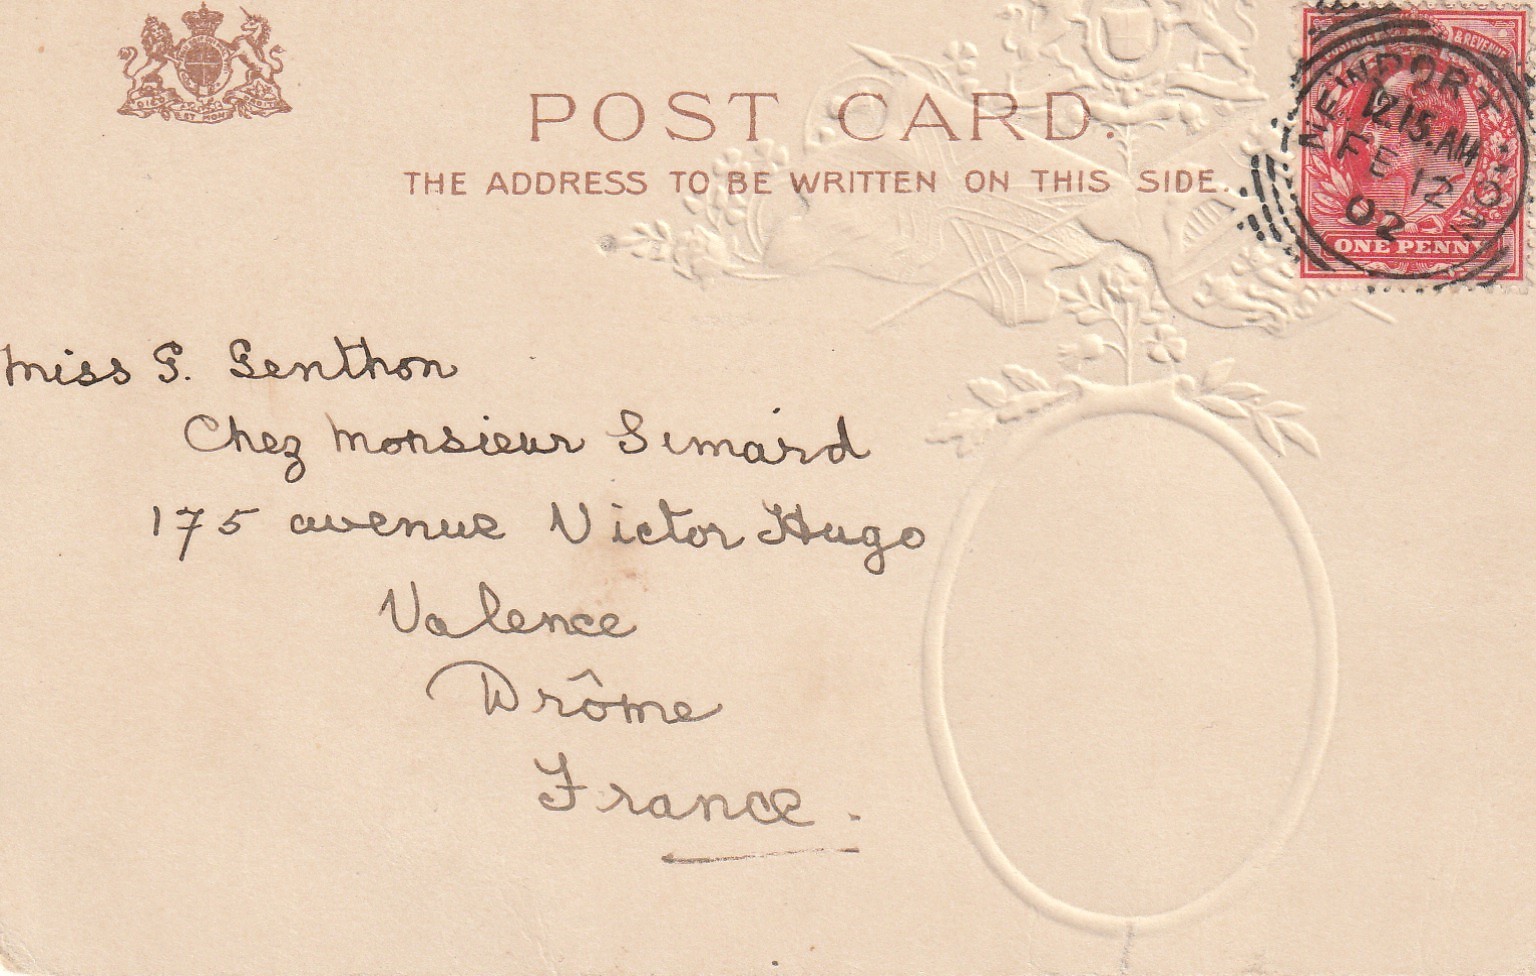 POST CARD.
THE ADDRESS TO BE WRITTEN ON THIS SIDE.
POSTAGE & REVENUE
NEWPORT. MON
12.15.AM
FE 12
02
ONE PENNY
Miss G. Genthon
Chez Monsieur Simard
175 avenue Victor Hugo
Valence
Drôme
France.